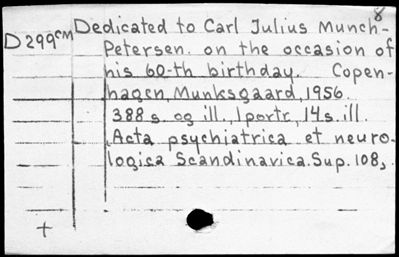 8
D299CM Dedicated to Carl Julius Munch-
Petersen. on the occasion of
his 60-th birthday. Copen-
hagen, Munksgaard, 1956.
388 s. og ill., 1 portr., 14 s. ill.
Acta psychiatrica et neuro-
logica Scandinavica. Sup. 108,
+